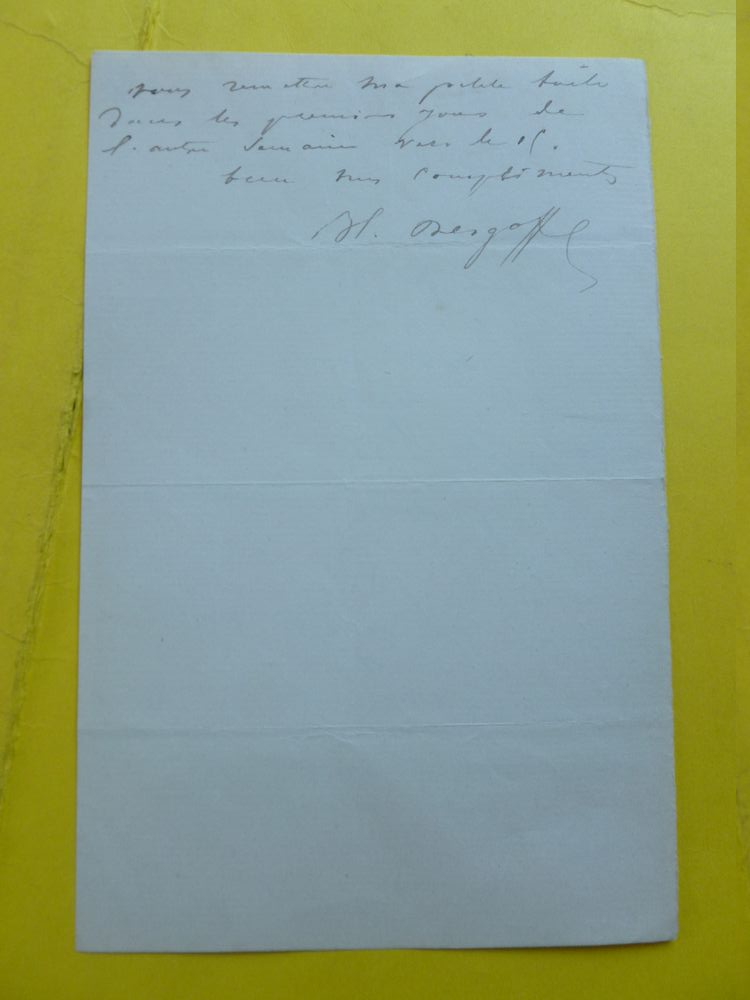 vous remettre ma petite toile
dans les premiers jours de
l'autre semaine vers le 15.
tous mes compliments
Bl. Desgoffe